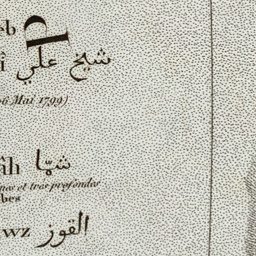 eb
î شيخ علي
6 Mai 1799)
âh شمّا
et très profondes
bes
wz القوز